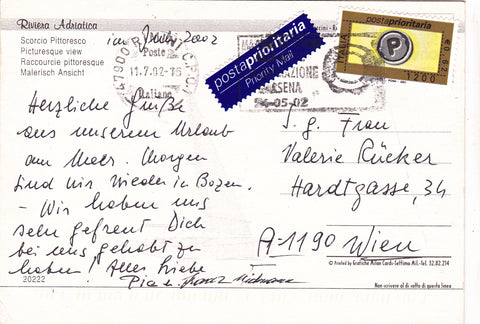 Riviera Adriatica
Scorcio Pittoresco
Picturesque view
Raccourcie pittoresque
Malerisch Ansicht
im Juli 2002
47900 RIMINI C.P.O.
Poste
11.7.02-16
Italiane
postaprioritaria
Priority Mail
postaprioritaria
ITALIA
P
€ 0,62
1200
Herzliche Grüße
aus unserem Urlaub
am Meer. Morgen
sind wir wieder in Bozen.
- Wir haben uns
sehr gefreut Dich
bei uns gehabt zu
haben! Alles Liebe
Pia u.
S.g. Frau
Valerie Rücker
Hardtgasse, 34
A-1190 Wien
20222
© Printed by Grafiche Milan Cards-Settimo Mil.-Tel. 32.82.214
Non scrivere al di sotto di questa linea